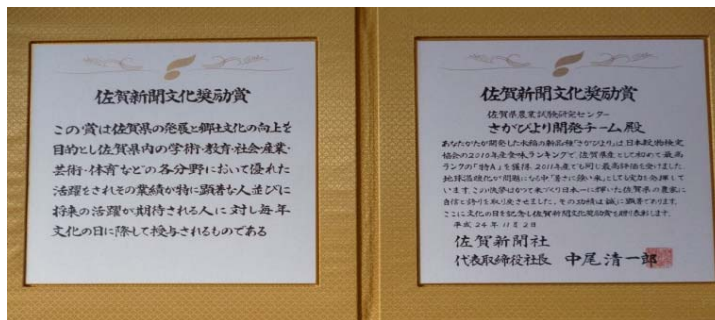 佐賀新聞文化奨励賞
この賞は佐賀県の発展と郷土文化の向上を
目的とし佐賀県内の学術・教育・社会・産業・
芸術・体育などの各分野において優れた
活躍をされその業績が特に顕著な人並びに
将来の活躍が期待される人に対し毎年
文化の日に際して授与されるものである
佐賀新聞文化奨励賞
佐賀県農業試験研究センター
さがびより開発チーム殿
あなたがたが開発した水稲の新品種「さがびより」は、日本穀物検定
協会の2010年産食味ランキングで、佐賀県産として初めて最高
ランクの「特A」を獲得、2011年産でも同じ最高評価を受けました。
地球温暖化が問題になる中「暑さに強い米」としても実力を発揮して
います。この快挙はかつて米づくり日本一に輝いた佐賀県の農家に
自信と誇りを取り戻させました。その功績は誠に顕著であります。
ここに文化の日を記念し佐賀新聞文化奨励賞を贈り表彰します。
平成24年11月2日
佐賀新聞社
代表取締役社長 中尾清一郎